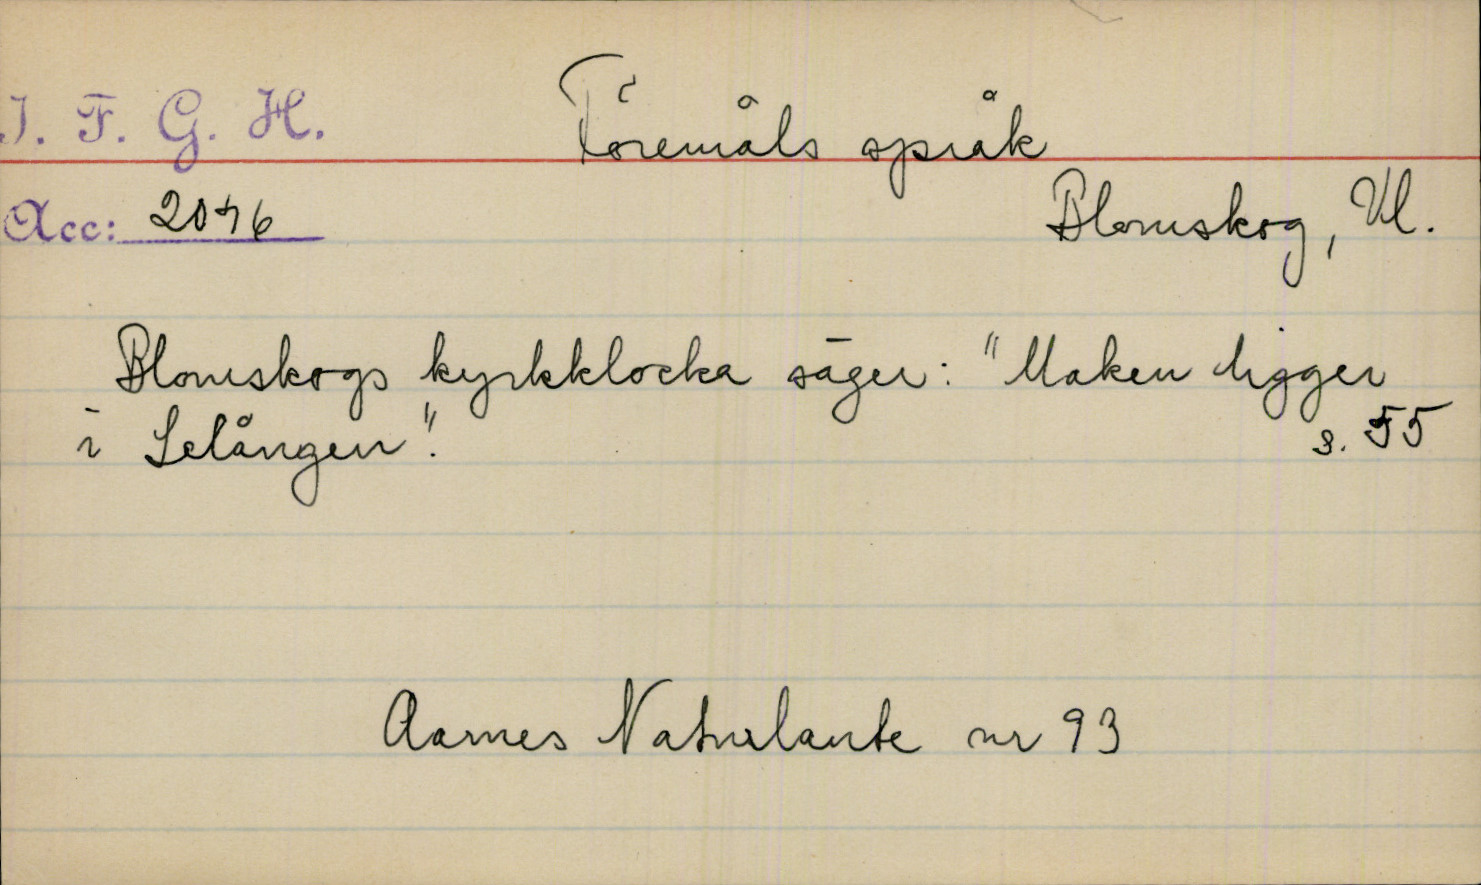 I. F. G. H.
Föremåls språk
Acc: 2076
Blomskog, Vl.
Blomskogs kyrkklocka säger: "Maken ligger
i Lelången".
s. 55
Aarnes Naturlaute nr 93